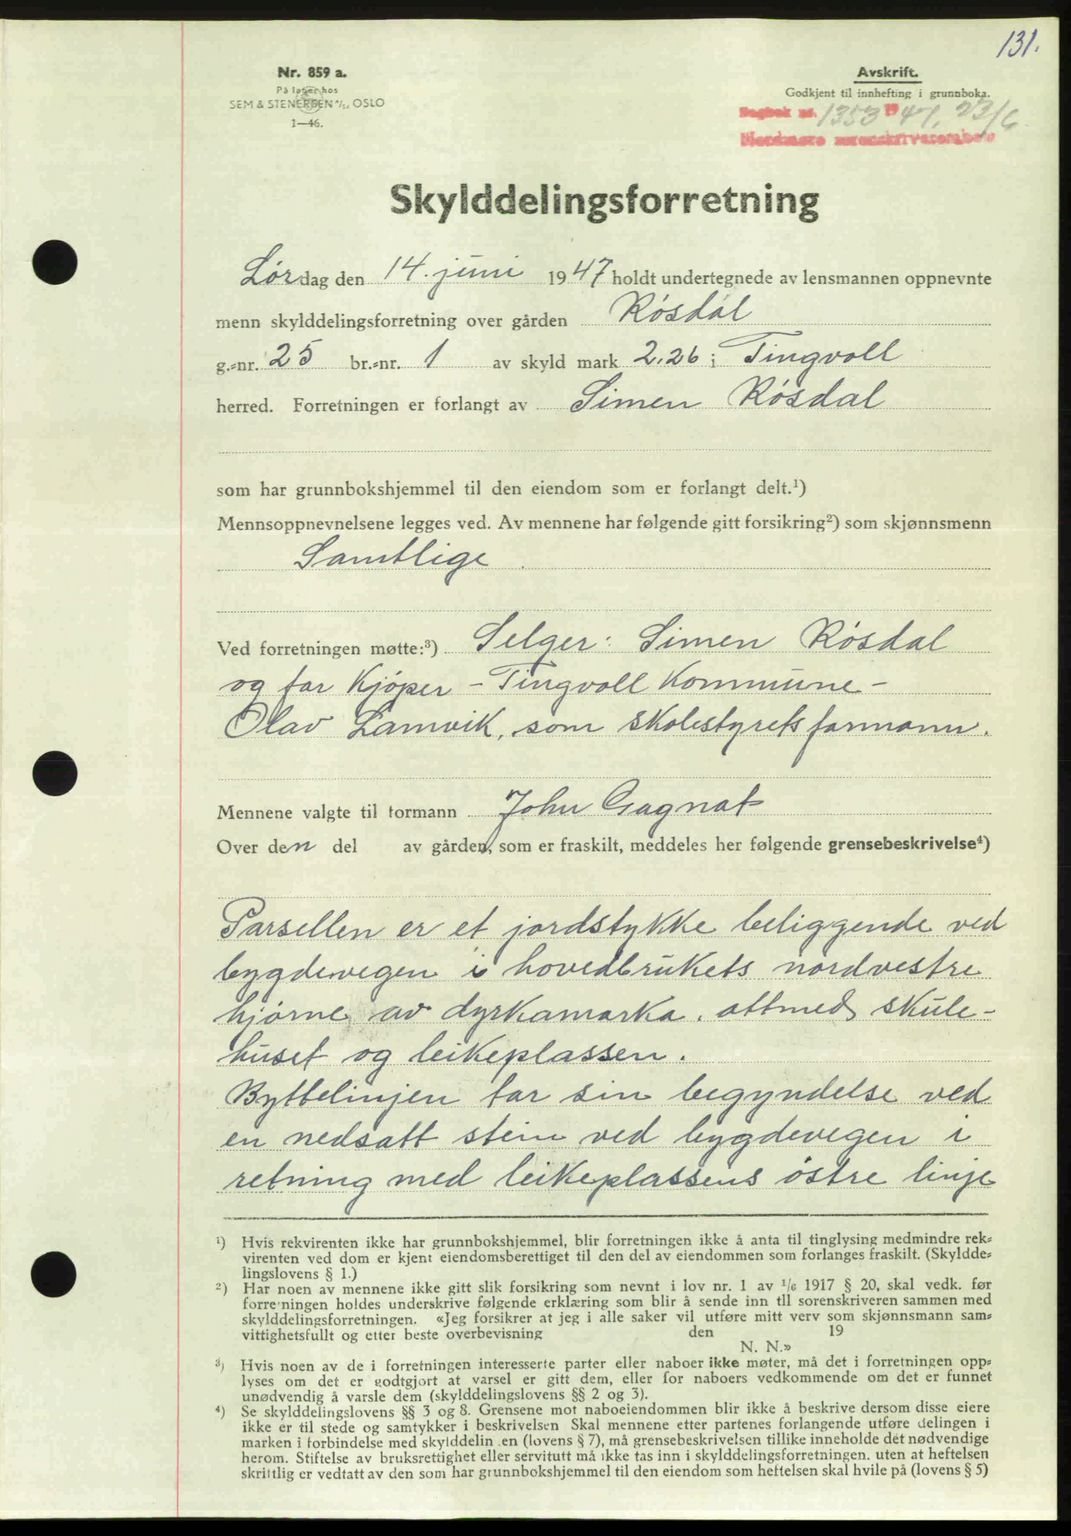 131.
Nr. 859 a.
På lager hos
SEM & STENERSEN A/S, OSLO
1—46.
Avskrift.
Godkjent til innhefting i grunnboka.
Dagbok nr. 1353 1947, 23/6
Nordmøre sorenskriverembete
Skylddelingsforretning
Lørdag den 14. juni 1947 holdt undertegnede av lensmannen oppnevnte
menn skylddelingsforretning over gården Røsdal
g.=nr. 25 br.=nr. 1 av skyld mark 2,26 i Tingvoll
herred. Forretningen er forlangt av Simen Røsdal
som har grunnbokshjemmel til den eiendom som er forlangt delt.¹)
Mennsoppnevnelsene legges ved. Av mennene har følgende gitt forsikring²) som skjønnsmenn
Samtlige.
Ved forretningen møtte:³) Selger: Simen Røsdal
og for Kjøper – Tingvoll Kommune –
Olav Lamvik, som skolestyrets formann.
Mennene valgte til formann John Gagnat
Over den del av gården, som er fraskilt, meddeles her følgende grensebeskrivelse⁴)
Parsellen er et jordstykke beliggende ved
bygdevegen i hovedbrukets nordvestre
hjørne av dyrkamarka, attmed skule-
huset og leikeplassen.
Byttelinjen tar sin begyndelse ved
en nedsatt stein ved bygdevegen i
retning med leikeplassens østre linje
¹) Hvis rekvirenten ikke har grunnbokshjemmel, blir forretningen ikke å anta til tinglysing medmindre rek=
virenten ved dom er kjent eiendomsberettiget til den del av eiendommen som forlanges fraskilt. (Skyldde=
lingslovens § 1.)
²) Har noen av mennene ikke gitt slik forsikring som nevnt i lov nr. 1 av 1/6 1917 § 20, skal vedk. før
forretningen holdes underskrive følgende erklæring som blir å sende inn til sorenskriveren sammen med
skylddelingsforretningen. «Jeg forsikrer at jeg i alle saker vil utføre mitt verv som skjønnsmann sam=
vittighetsfullt og etter beste overbevisning den 19
N. N.»
³) Hvis noen av de i forretningen interesserte parter eller naboer ikke møter, må det i forretningen opp=
lyses om det er godtgjort at varsel er gitt dem, eller for naboers vedkommende om det er funnet
unødvendig å varsle dem (skylddelingslovens §§ 2 og 3).
⁴) Se skylddelingslovens §§ 3 og 8. Grensene mot naboeiendommen blir ikke å beskrive dersom disse eiere
ikke er til stede og samtykker i beskrivelsen Skal mennene etter partenes forlangende utføre delingen i
marken i forbindelse med skylddelin en (lovens § 7), må grensebeskrivelsen tillike inneholde det nødvendige
herom. Stiftelse av bruksrettighet eller servitutt må ikke tas inn i skylddelingsforretningen, uten at heftelsen
skriftlig er vedtatt av den som har grunnbokshjemmel til den eiendom som heftelsen skal hvile på (lovens § 5)